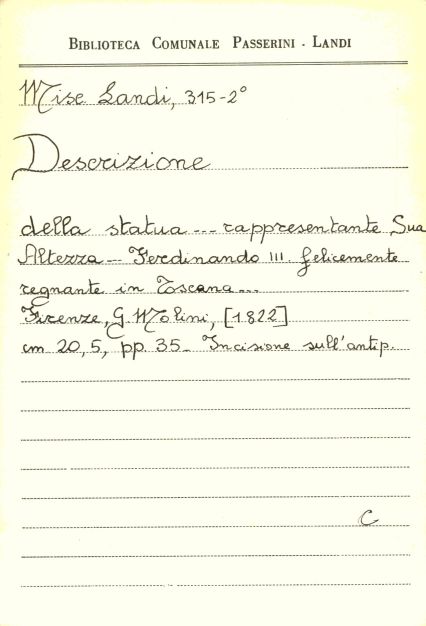 BIBLIOTECA COMUNALE PASSERINI - LANDI
Misc Landi, 315-2°
Descrizione
della statua --- rappresentante Sua
Altezza -- Ferdinando III. felicemente
regnante in Toscana ---
Firenze, G. Molini, [1822]
cm 20,5, pp. 35 - Incisione sull'antip.
C